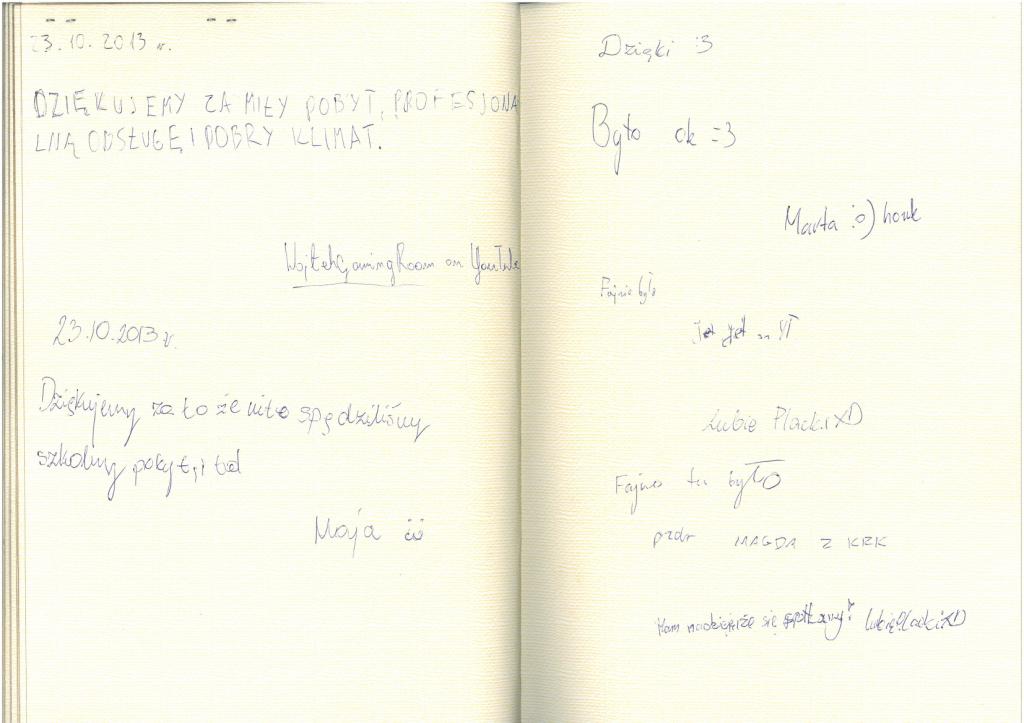 23.10.2013 r.
DZIĘKUJEMY ZA MIŁY POBYT, PROFESJONA
LNĄ ODSŁUGĘ I DOBRY KLIMAT.
WojtekGamingRoom on YouTube
23.10.2013 r.
Dziękujemy za to że miło spędziliśmy
szkolny pobyt, i td
Maja
Dzięki :3
Było ok =3
Marta :o) honk
Fajnie było
Jet jet on YT
Lubię Placki XD
Fajnie tu było
pzdr MAGDA Z KRK
Mam nadzieję że się spotkamy! lubię Placki XD